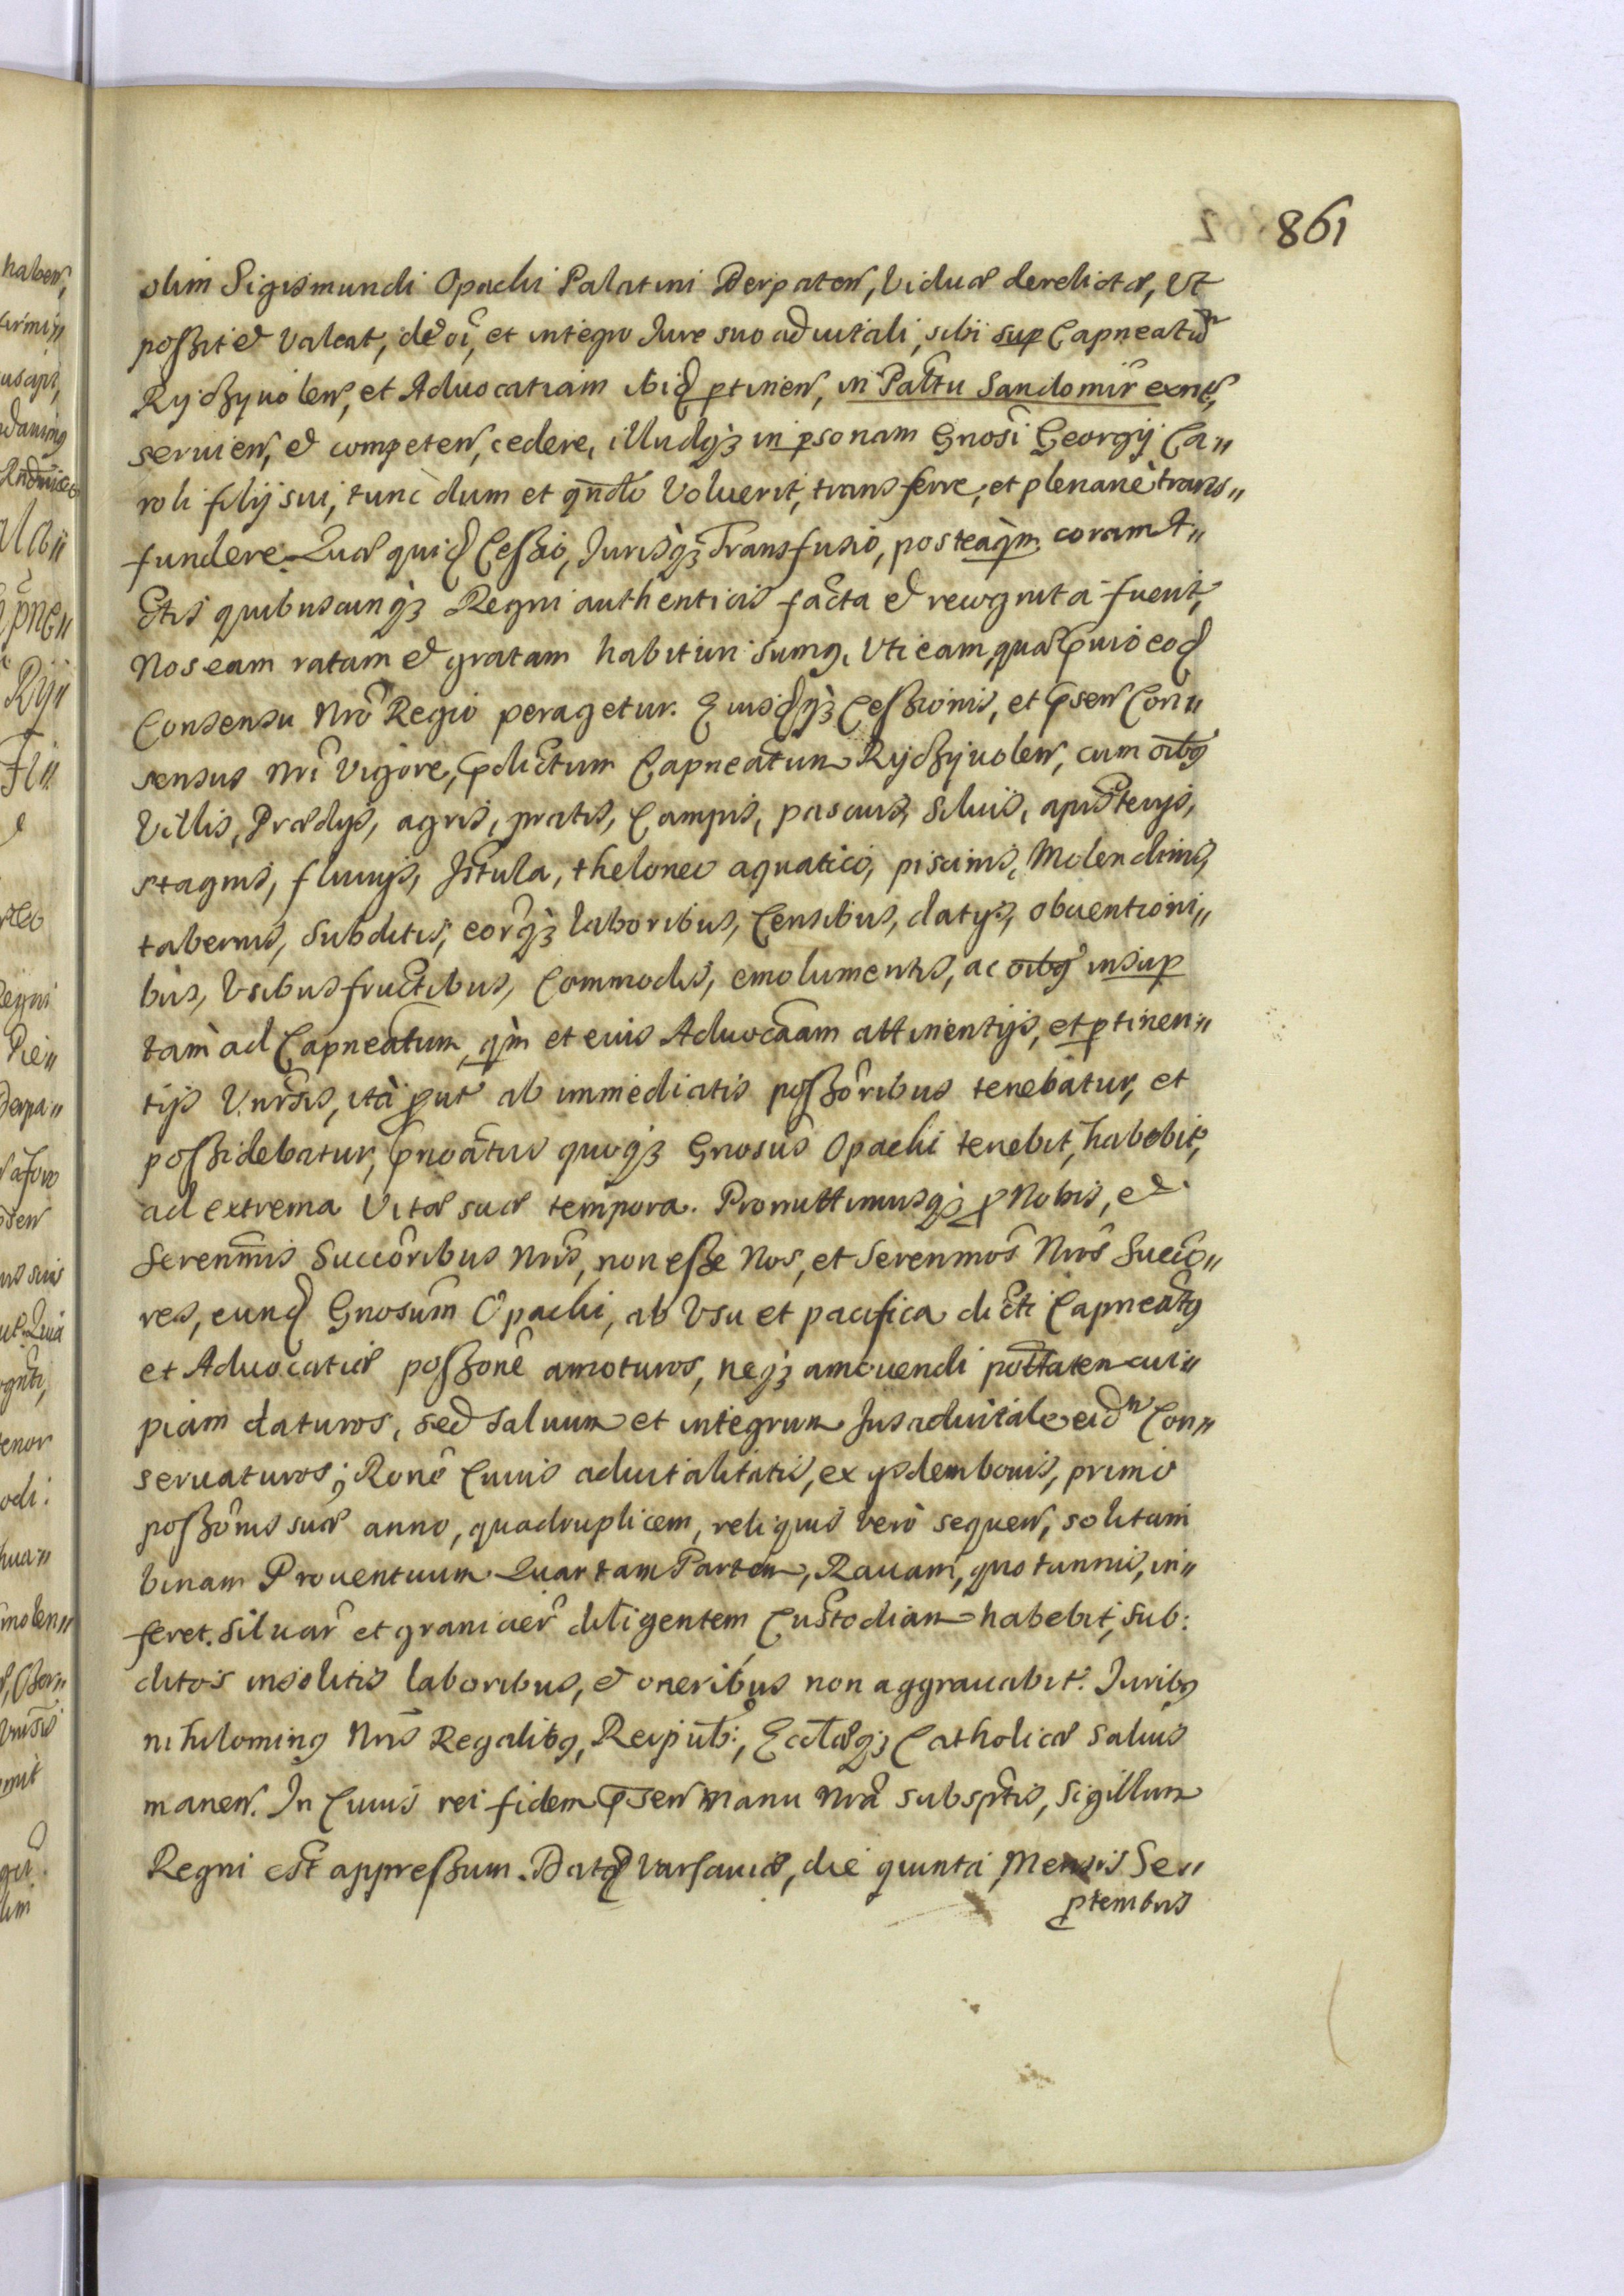 861
olim Sigismundi Opacki Palatini Derpaten, Viduæ derelictæ, Vt
possit et Valeat, de oi, et integro Jure suo aduitali, sibi sup Capneatu
Rydzyuolen, et Aduocatiam ibid ptinen, in Palttu Sandomir exnt,
seruien, et competen, cedere, illudqз in psonam Gnosi Georgij Ca„
roli filij sui, tunc dum et qndo Voluerit, transferre, et plenariè trans„
fundere. Quæ quid Cessio, Jurisqз Transfusio, posteaqm coram A„
ctis quibuscunqз Regni authenticis facta et recognita fuerit,
Nos eam ratam et gratam habituri sumq, Vti eam, quæ puio eod
Consensu Nro Regio peragetur. Eiusdqз Cessionis, et psen Con„
sensus Nri Vigore, pdictum Capneatum Rydzyuolen, cum oibq
Villis, Prædys, agris, pratis, Campis, pascuis, siluis, apisterys,
stagnis, fluuys, Jstula, theloneo aquatico, piscinis, Molendinis,
tabernis, subditis, eorqз laboribus, Censibus, datys, obuentioni„
bus, Vsibusfructibus, Commodis, emolumentis, ac oibq insup
tam ad Capneatum, qm et eius Aduocaam attinentijs, et ptinen„
tijs Vnrsis, ità put ab immediatis possoribus tenebatur, et
possidebatur, pnoatus quoqз Gnosus Opacki tenebit, habebit,
ad extrema Vitæ suæ tempora. Promittimusqз p Nobis, et
Serenmis Succoribus Nris, non esse Nos, et Serenmos Nros Succo„
res, eund Gnosum Opacki, ab Vsu et pacifica dicti Capneatq
et Aduocatiæ possone amoturos, neqз amouendi pottatem cui„
piam daturos, sed saluum et integrum Jus aduitale eid Con„
seruaturos; Rone Cuius aduitalitatis, ex ysdem bonis, primo
possonis suæ anno, quadruplicem, reliquis verò sequen, solitam
binam Prouentuum Quartam Partem, Rauam, quotannis, in„
feret. Siluar et graniaer diligentem Custodiam habebit, sub:
ditos insolitis laboribus, et oneribus non aggrauabit. Juribq
nihilominq Nris Regalibq, Reipub:, Ecclæqз Catholicæ saluis
manen. In Cuius rei fidem psen manu Nra subsptis, Sigillum
Regni est appressum. Dat Varsauiæ, die quinta, Mensis Se„
ptembris